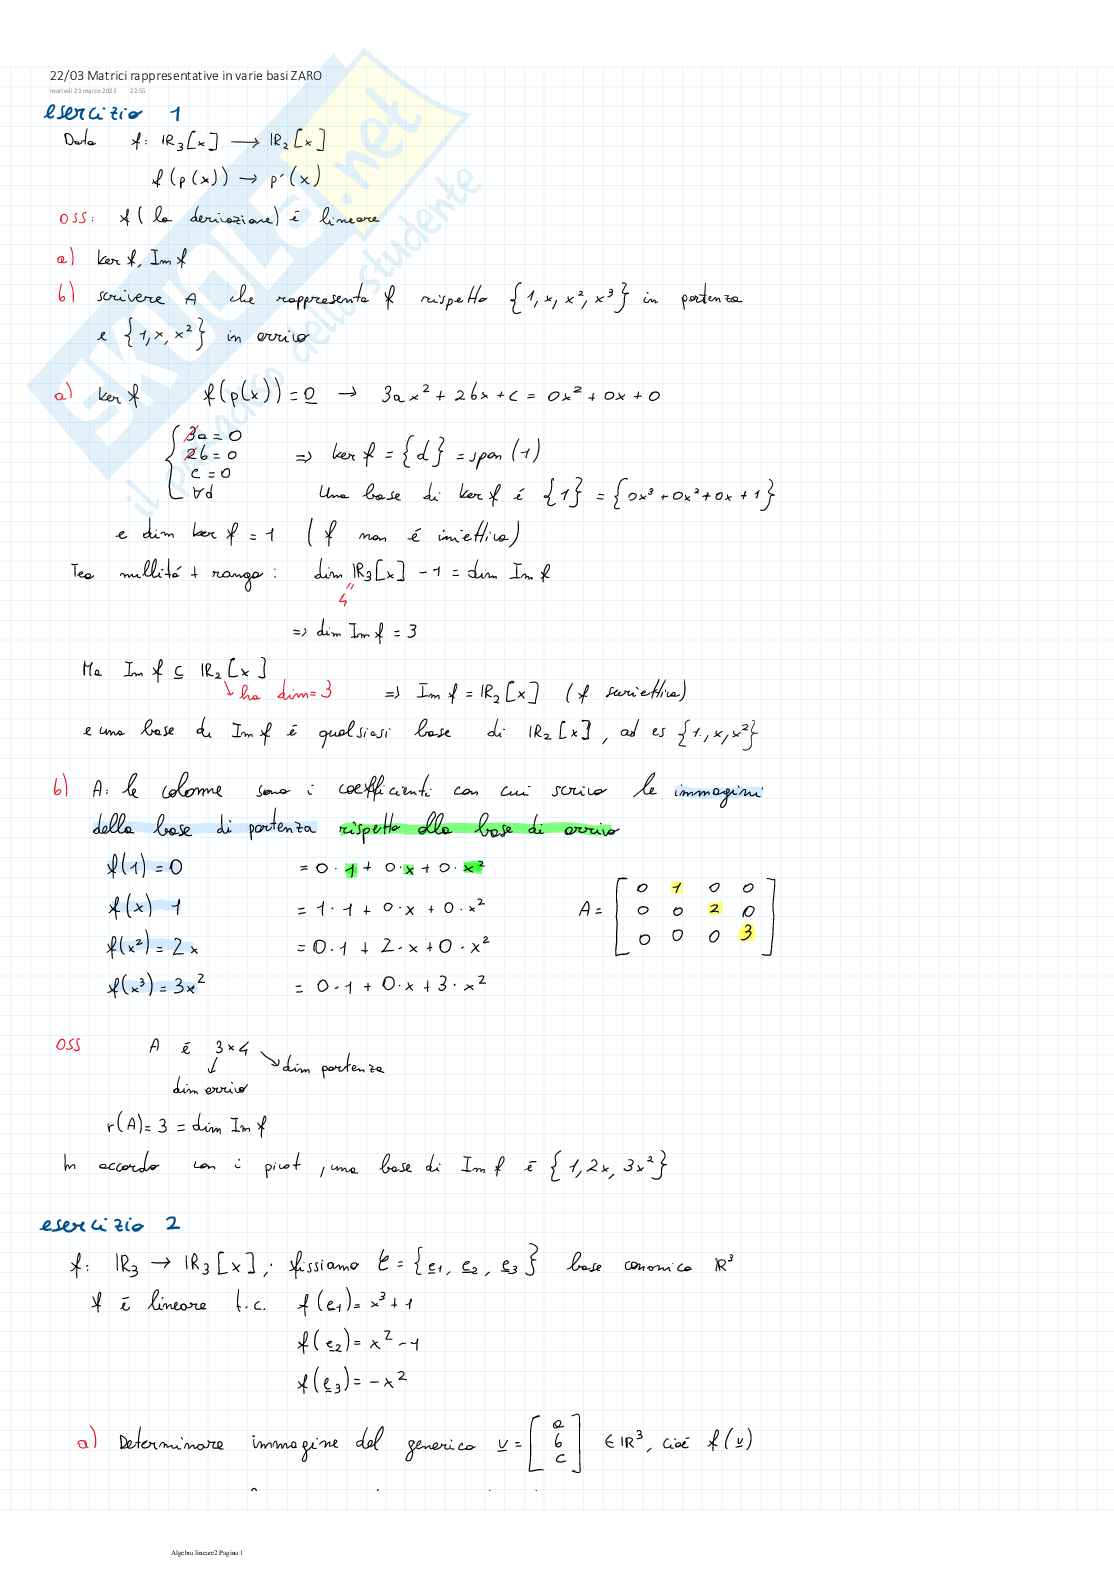 22/03 Matrici rappresentative in varie basi ZARO
martedì 21 marzo 2023 22:55
esercizio 1
Data f: IR₃[x] → IR₂[x]
f(p(x)) → p'(x)
OSS: f (la derivazione) é lineare
a) ker f, Im f
b) scrivere A che rappresenta f rispetto {1, x, x², x³} in partenza
e {1, x, x²} in arrivo
a) ker f f(p(x)) = 0 → 3ax² + 2bx + c = 0x² + 0x + 0
{ 3a = 0
2b = 0 => ker f = {d} = span (1)
c = 0
∀d Una base di ker f é {1} = {0x³ + 0x² + 0x + 1}
e dim ker f = 1 (f non é iniettiva)
Teo nullitá + rango: dim IR₃[x] - 1 = dim Im f
"
4
=> dim Im f = 3
Ma Im f ⊆ IR₂[x]
↳ ha dim = 3 => Im f = IR₂[x] (f suriettiva)
e una base di Im f é qualsiasi base di IR₂[x], ad es {1, x, x²}
b) A: le colonne sono i coefficienti con cui scrivo le immagini
della base di partenza rispetto alla base di arrivo
f(1) = 0 = 0·1 + 0·x + 0·x²
f(x) 1 = 1·1 + 0·x + 0·x²
f(x²) = 2x = 0·1 + 2·x + 0·x²
f(x³) = 3x² = 0·1 + 0·x + 3·x²
A = [ 0 1 0 0
0 0 2 0
0 0 0 3 ]
OSS A é 3×4
↓ ↘ dim partenza
dim arrivo
r(A) = 3 = dim Im f
In accordo con i pivot, una base di Im f é {1, 2x, 3x²}
esercizio 2
f: IR₃ → IR₃[x]; fissiamo C = {e1, e2, e3} base canonica IR³
f é lineare t.c. f(e1) = x³ + 1
f(e2) = x² - 1
f(e3) = -x²
a) Determinare immagine del generico v = [ a
b
c ] ∈ IR³, cioé f(v)
Algebra lineare2 Pagina 1
SKUOLA.net
il paradiso dello studente